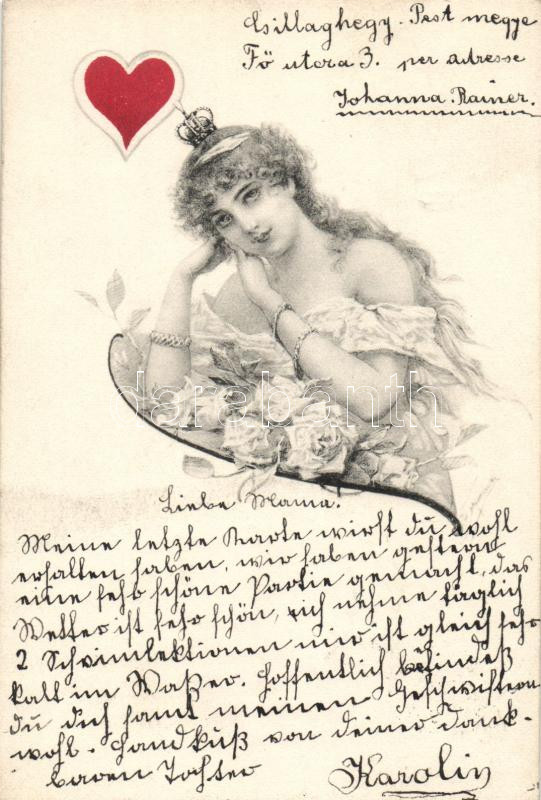 Csillaghegy. Pest megye
Fö utcza 3. per adresse
Johanna Rainer.
darabanth
Liebe Mama.
Meine letzte Karte wirst du wohl
erhalten haben, wir haben gestern
eine sehr schöne Partie gemacht, das
Wetter ist sehr schön, ich nehme täglich
2 Schwimlektionen mir ist gleich sehr
kalt im Waßer. Hoffentlich befindest
du dich samt meinen Geschwistern
wohl. Handkuß von deiner dank-
baren Tochter
Karolin